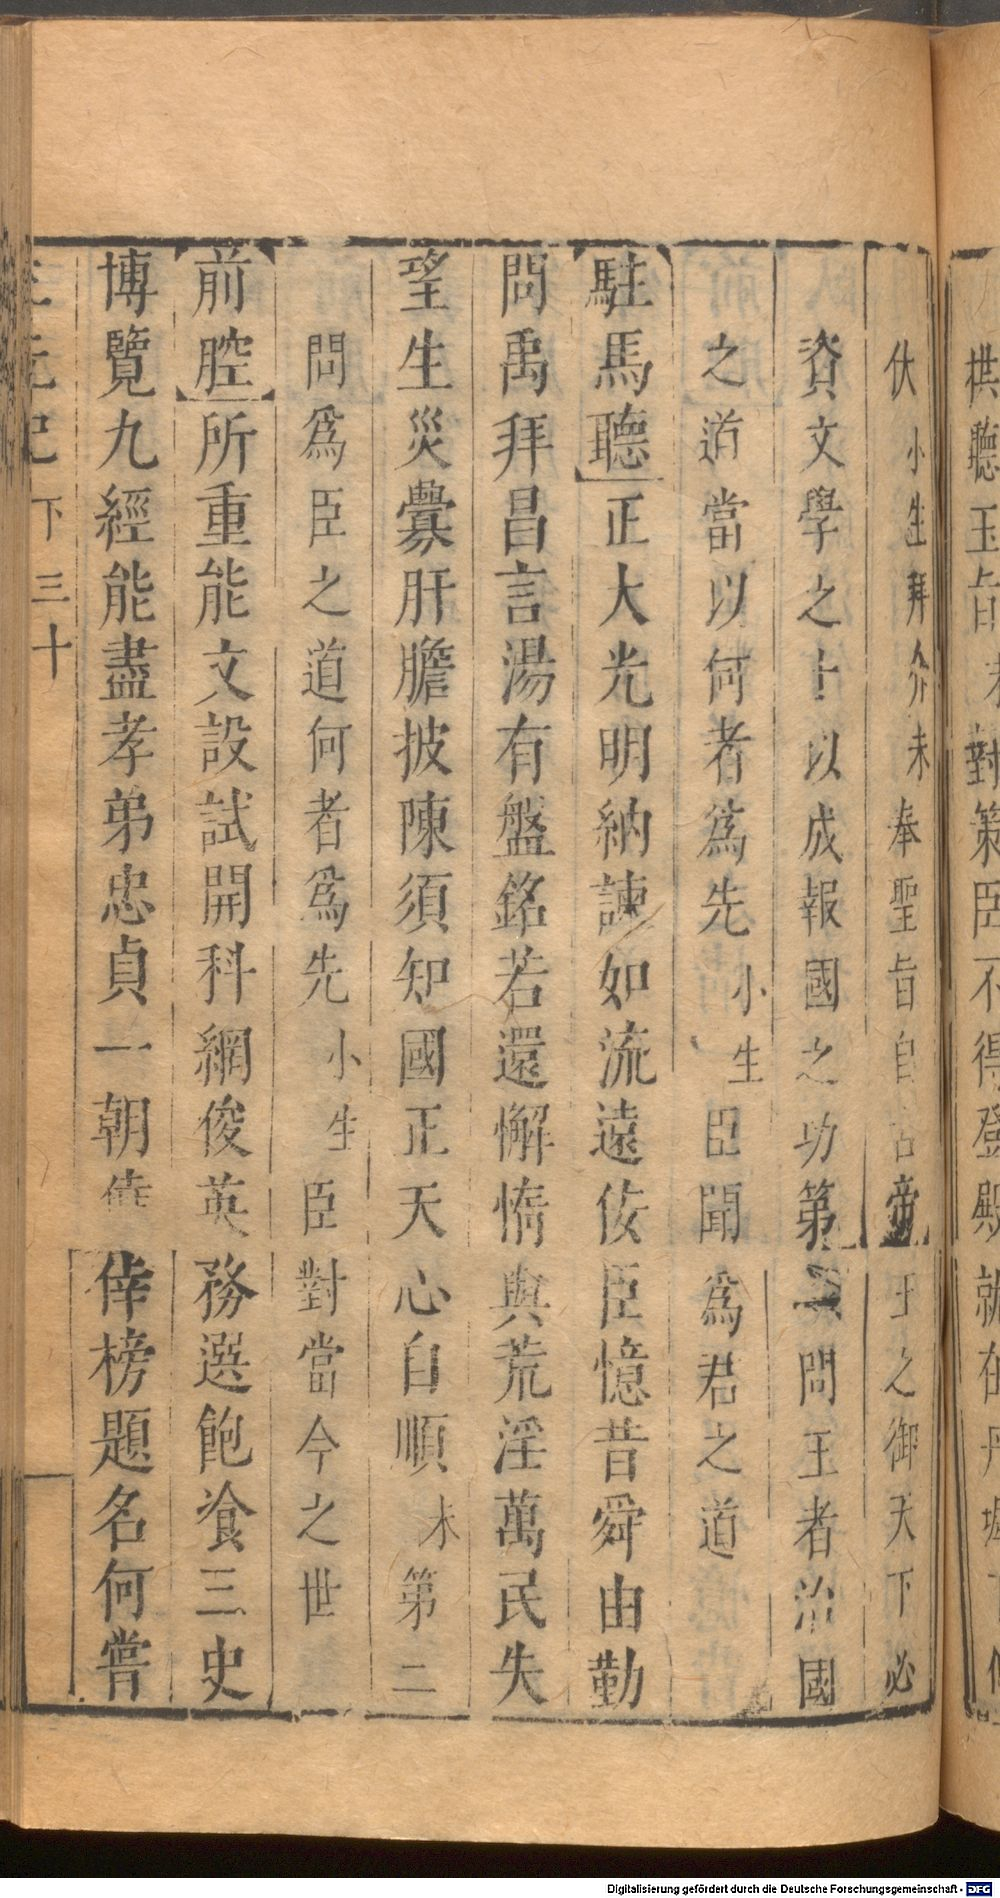 拱聽玉旨 對策臣不得登殿就在丹墀下
伏小生拜介末奉聖旨自古帝王之御天下必
資文學之士以成報國之功第一問王者治國
之道當以何者爲先小生臣聞爲君之道
駐馬聽正大光明納諫如流遠佞臣憶昔舜由勤
問禹拜昌言湯有盤銘若還懈惰與荒淫萬民失
望生災釁肝膽披陳須知國正天心自順末第二
問爲臣之道何者爲先小生臣對當今之世
前腔所重能文設試開科網俊英務選飽飡三史
博覽九經能盡孝弟忠貞一朝僥倖榜題名何嘗
三元記 下 三十
Digitalisierung gefördert durch die Deutsche Forschungsgemeinschaft - DFG